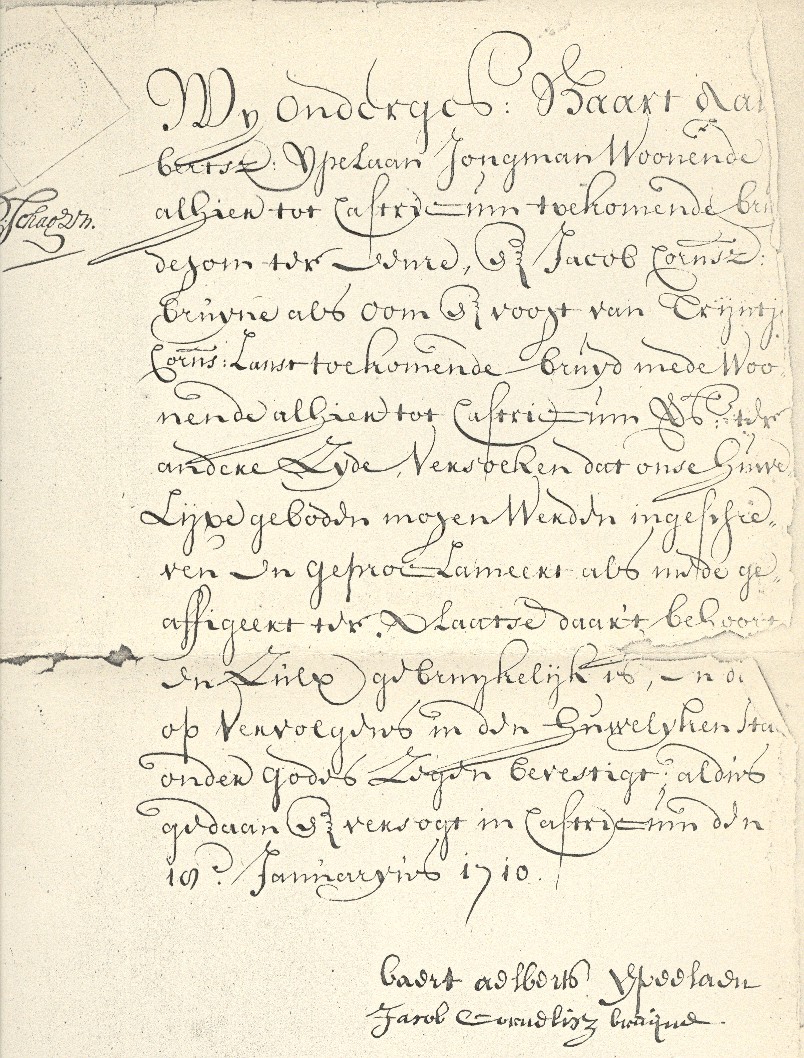 Wy onderges: Baart Aal
bertsz: Ypelaan Jongman Woonende
alhier tot Castricum toekomende bru
degom ter Eenre, En Jacob Cornsz:
bruyne als oom En voogt van Tryntj
Schagen.
Corns: Lanst toekomende bruyd mede Woo
nende alhier tot Castricum ter
andere Zyde, Versoeken dat onse Huwe
Lyxe geboden mogen Werden ingeschre„
ven En geproclameert als mede ge„
affigeert ter Plaatse daar't behoort
En Zulx gebruykelijk is, En d
op Vervolgens in den Huwelyken sta
onder Godes Zegen bevestigt; aldus
gedaan En versogt in Castricum den
18e Januaryus 1710.
baert aelberts Ypeelaen
Jacob Cornelisz bruijne